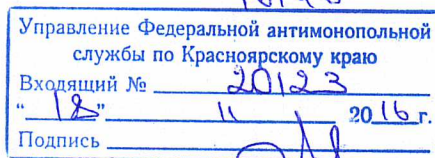 Управление Федеральной антимонопольной
службы по Красноярскому краю
Входящий № 20123
"18" 11 2016 г.
Подпись